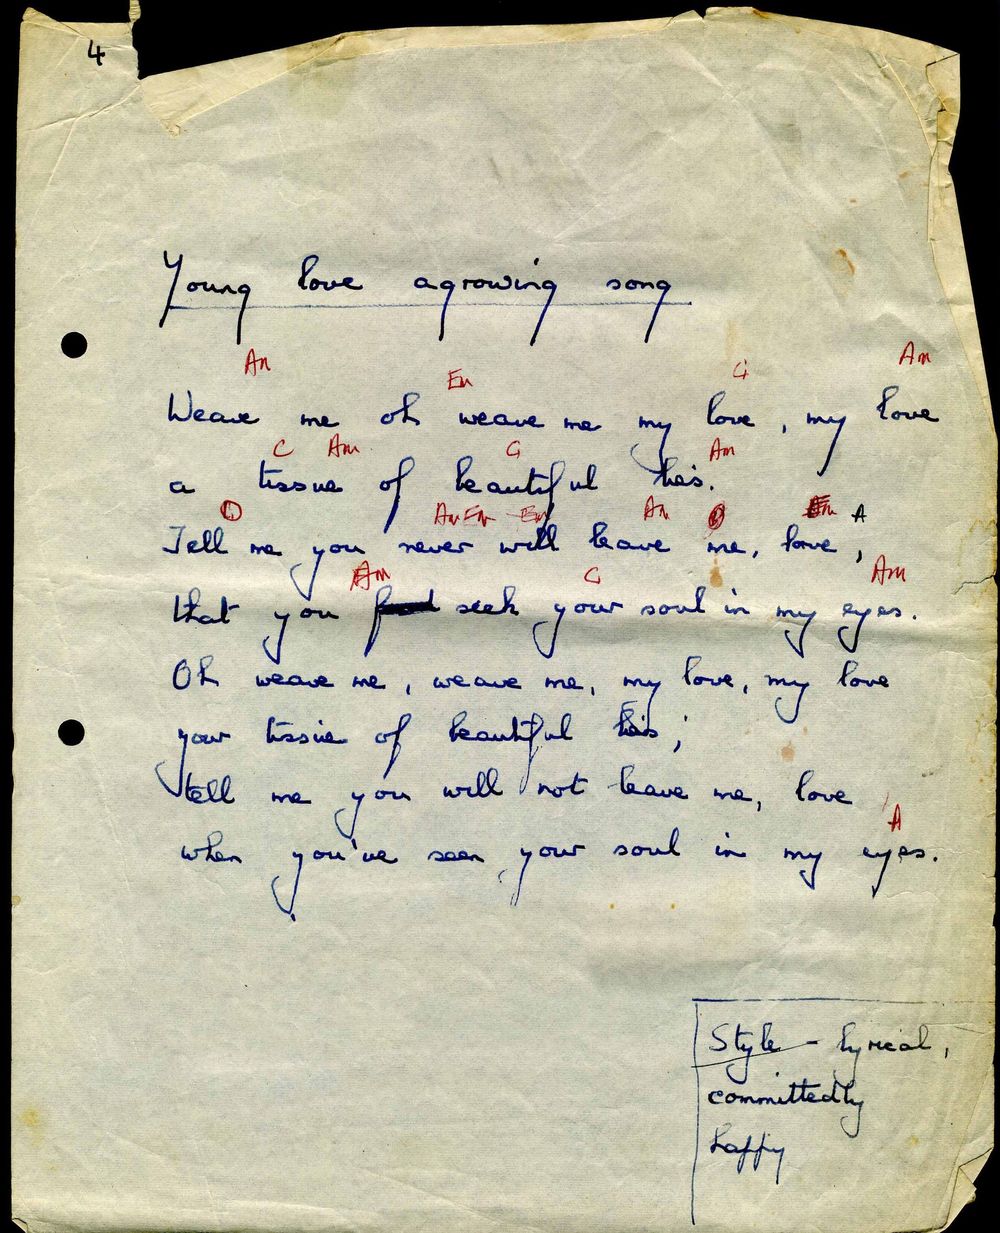 4
Young love agrowing song
Am Em G Am
Weave me oh weave me my love, my love
C Am G Am
a tissue of beautiful lies.
D Am Em Em Am Am A
Tell me you never will leave me, love,
Am C Am
that you seek your soul in my eyes.
Oh weave me, weave me, my love, my love
your tissue of beautiful lies;
tell me you will not leave me, love
A
when you've seen your soul in my eyes.
Style - lyrical,
committedly
happy